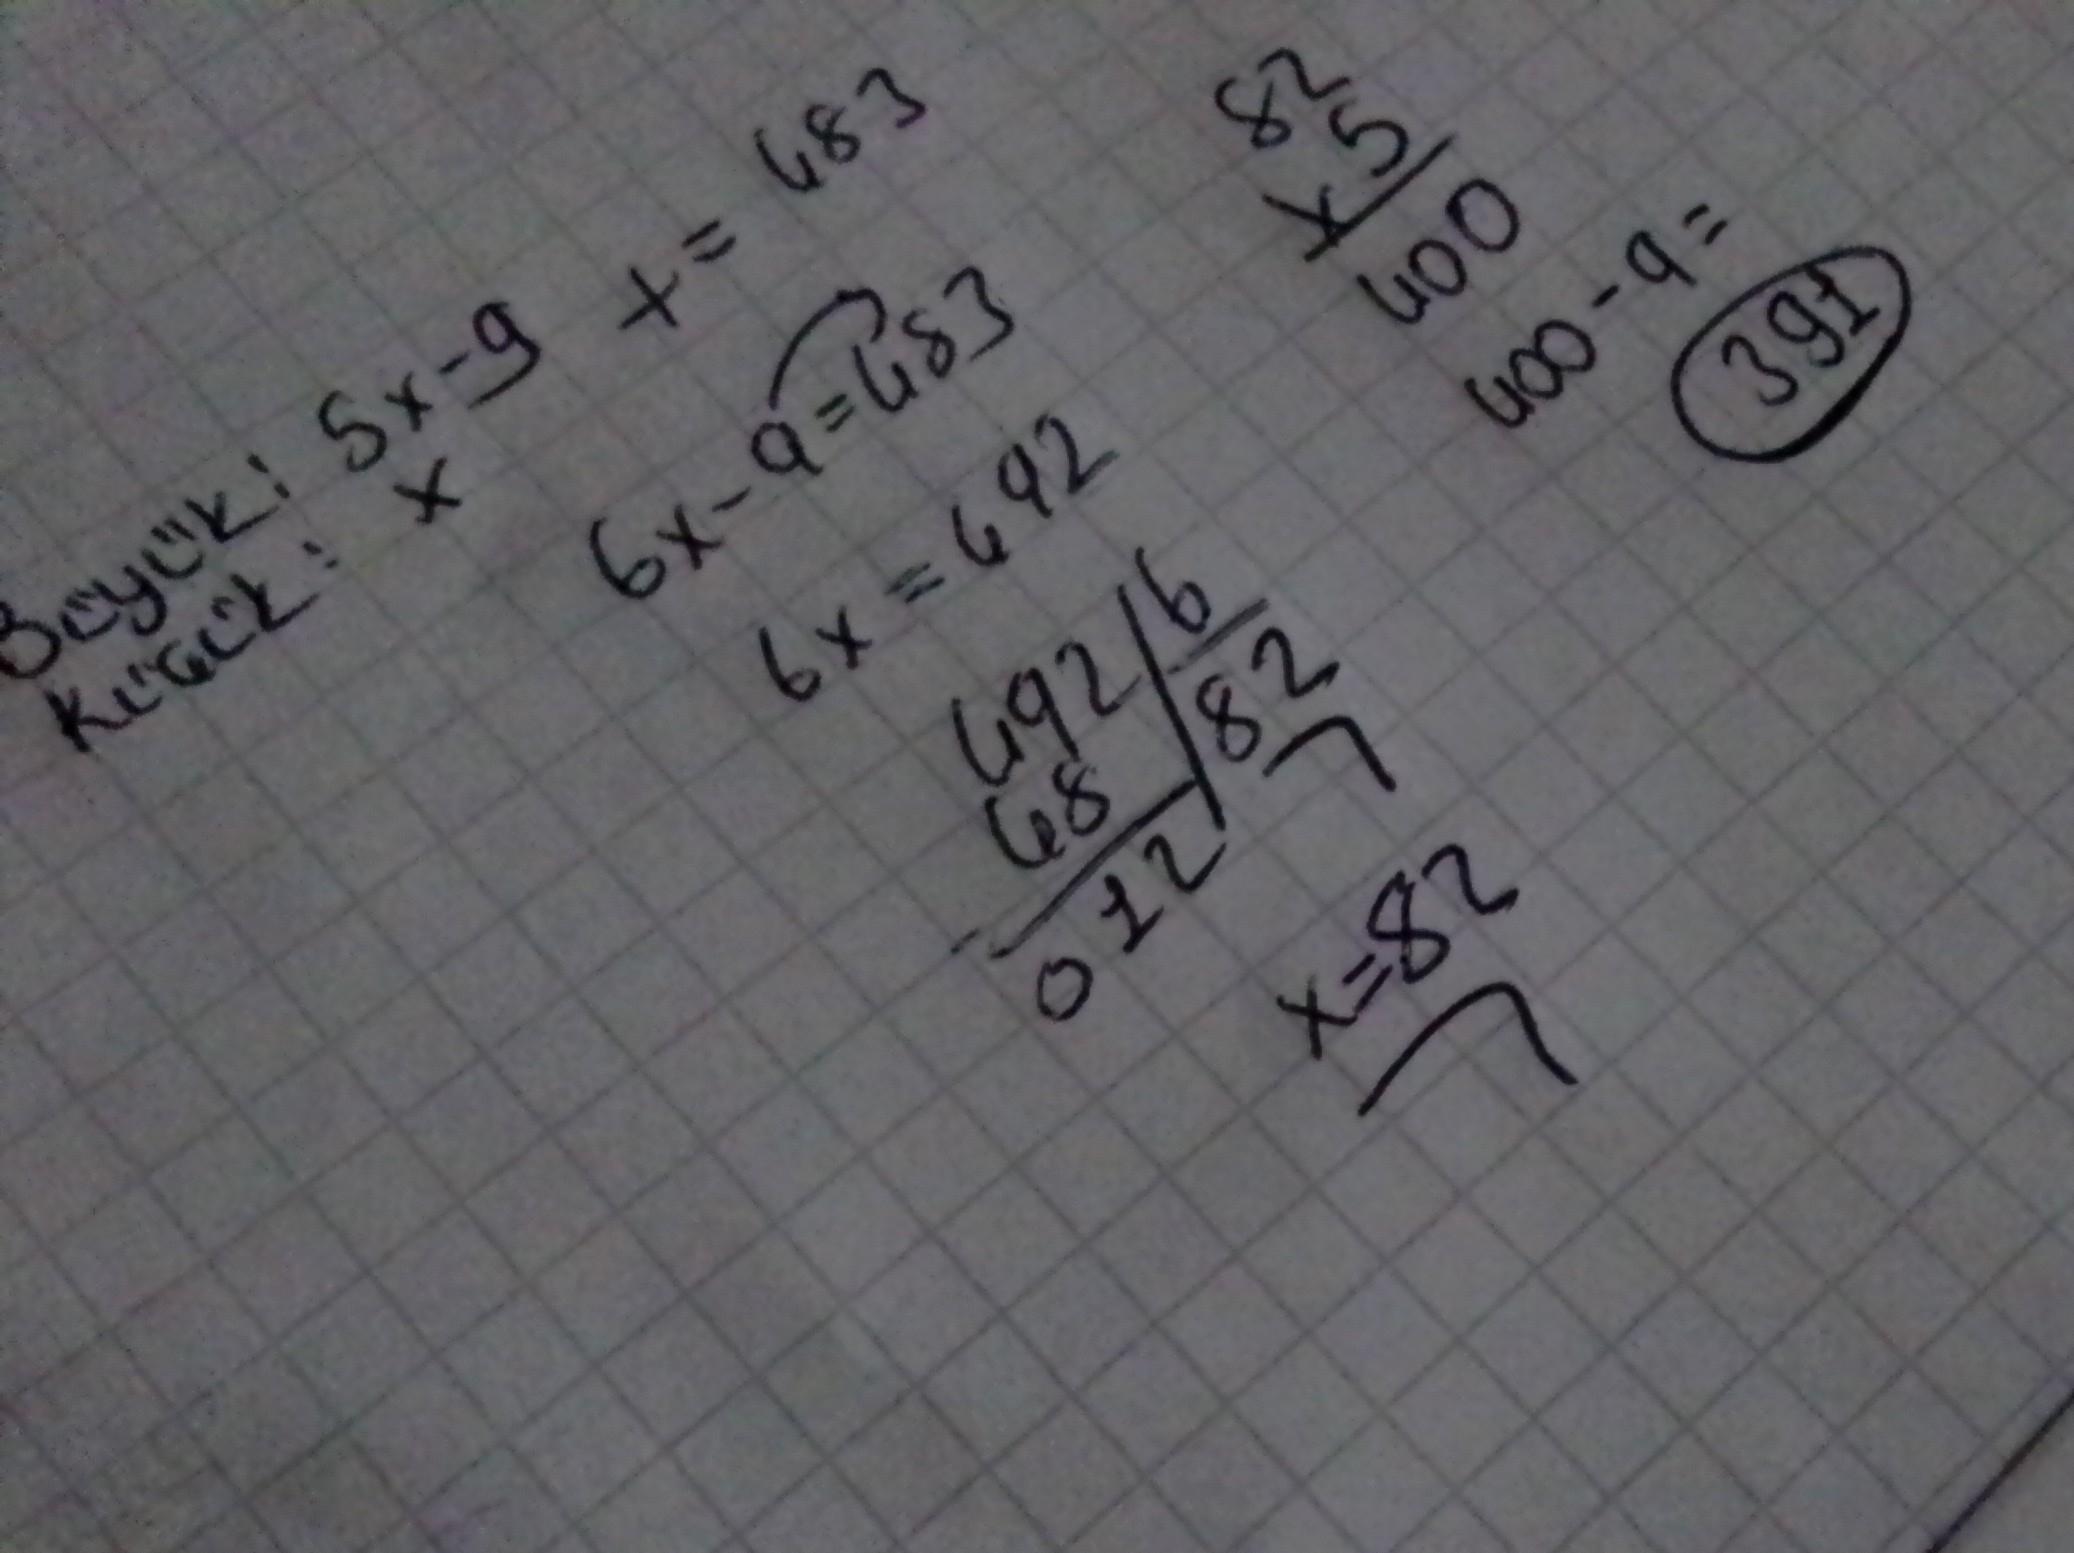 Büyük: 5x-9
Küçük: x
x = 483
6x - 9 = 483
6x = 492
492 6
48 82
012
x=82
82
x5
400
400-9=
391